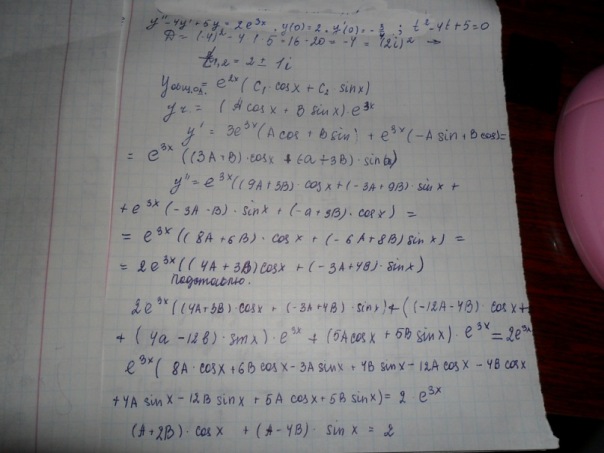 y'' - 4y' + 5y = 2e^3x, y(0) = 2, y'(0) = -3/4; t² - 4t + 5 = 0
D = (-4)² - 4·1·5 = 16 - 20 = -4 = (2i)² ⇒
t1,2 = 2 ± 1i
y общ.од. = e^2x (C1·cosx + C2·sinx)
y ч. = (Acosx + Bsinx)·e^3x
y' = 3e^3x (Acos + Bsin) + e^3x (-Asin + Bcos) =
= e^3x ((3A+B)·cosx + (-a+3B)·sinx)
y'' = e^3x ((9A+3B)·cosx + (-3A+9B)·sinx +
+ e^3x (-3A-B)·sinx + (-a+3B)·cosx) =
= e^3x ((8A+6B)·cosx + (-6A+8B)sinx) =
= 2e^3x ((4A+3B)cosx + (-3A+4B)·sinx)
Подставляю.
2e^3x ((4A+3B)·cosx + (-3A+4B)·sinx) + ((-12A-4B)·cosx +
+ (4a-12B)·sinx)·e^3x + (5Acosx + 5Bsinx)·e^3x = 2e^3x
e^3x (8A·cosx + 6Bcosx - 3Asinx + 4Bsinx - 12Acosx - 4Bcosx
+ 4Asinx - 12Bsinx + 5Acosx + 5Bsinx) = 2·e^3x
(A+2B)·cosx + (A-4B)·sinx = 2